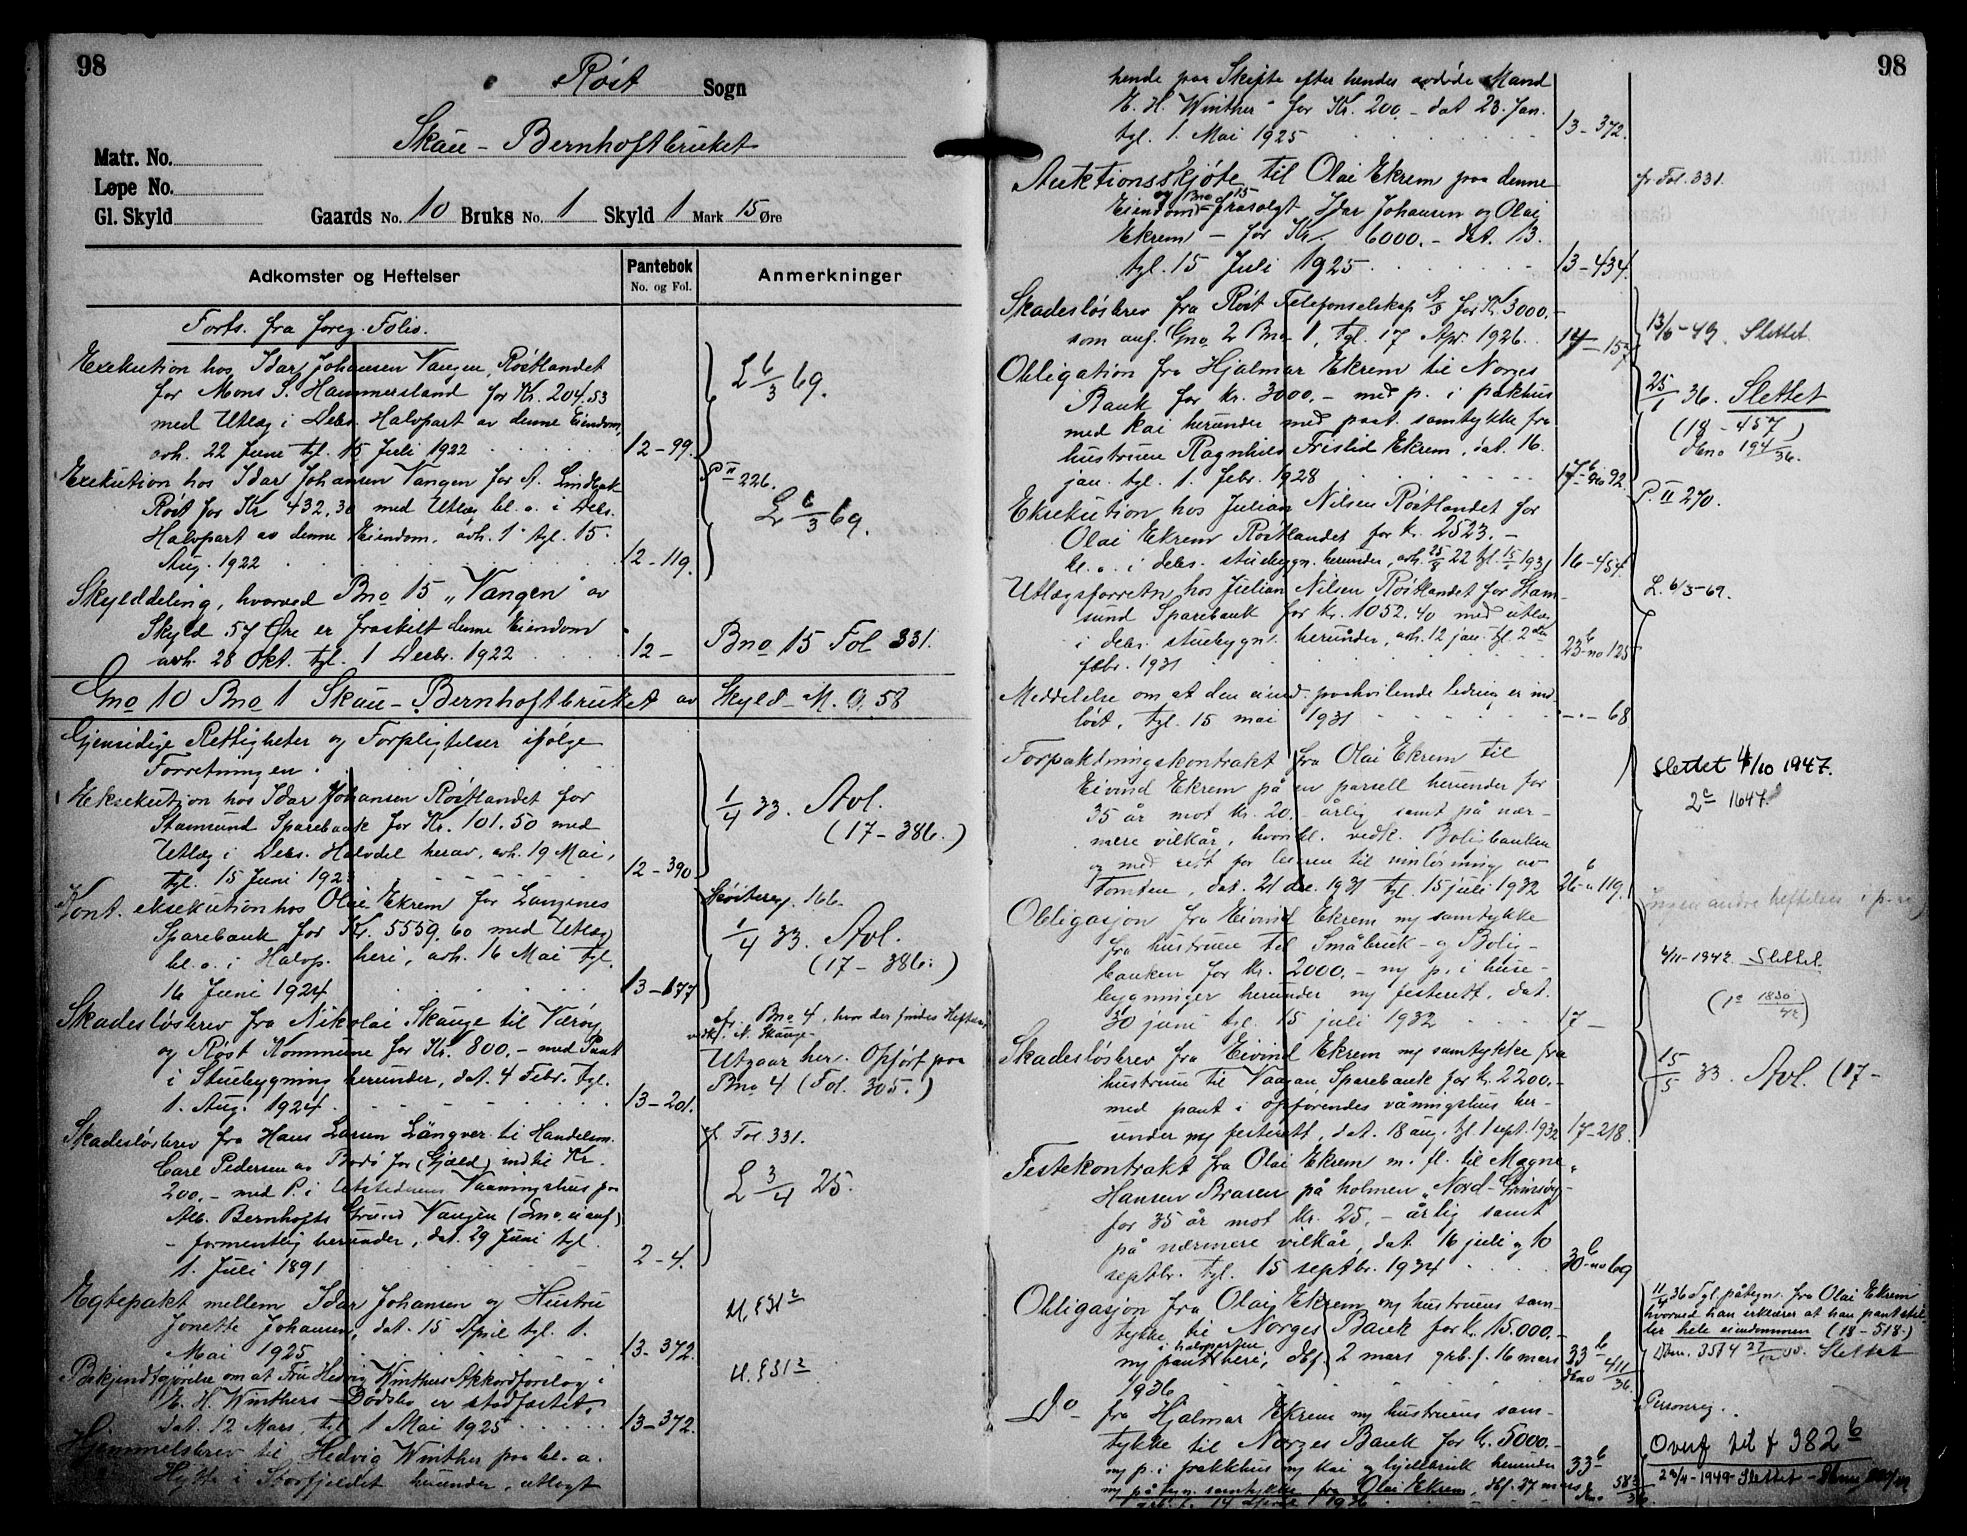 98
Røst Sogn
Skau - Bernhoftbruket
Matr. No.
Løpe No.
Gl. Skyld
Gaards No. 10 Bruks No. 1 Skyld 1 Mark 15 Øre
Adkomster og Heftelser
Pantebok
No. og Fol.
Anmerkninger
Forts. fra foreg. Folio.
Exekution hos Idar Johansen Vangen, Røstlandet
for Mons S. Hammersland for Kr. 204.53
med Utlæg i Debs. Halvpart av denne Eiendom,
avh. 22 Juni tgl. 15 Juli 1922 12-99.
L 6/3 69.
Exekution hos Idar Johansen Vangen for A. Lindbak
Røst for Kr 432,30 med Utlæg bl. a. i Debs.
Halvpart av denne Eiendom, avh. 1 tgl. 15.
Aug. 1922 12-119.
P II 226.
L 6/3 69.
Skylddeling, hvorved Bno 15 "Vangen" av
Skyld 57 Øre er fraskilt denne Eiendom
avh. 28 Okt. tgl. 1 Decbr. 1922 12-
Bno 15 Fol 331.
Gno 10 Bno 1 Skau - Bernhoftbruket av Skyld - M. 0,58
Gjensidige Rettigheter og Forpligtelser ifølge
Forretningen.
Eksekution hos Idar Johansen Røstlandet for
Stamsund Sparebank for Kr. 101.50 med
Utlæg i Debs. Halvdel herav, avh. 19 Mai,
tgl. 15 Juni 1923 12-390
1/4 33. Avl.
(17-386.)
Kont. eksekution hos Olai Ekrem for Langenes
Sparebank for Kr. 5559,60 med Utlæg
bl. a. i Halvp. heri, avh. 16 Mai tgl.
16 Juni 1924 13-177
166.
1/4 33. Avl.
(17-386.)
Skadesløsbrev fra Nikolai Skauge til Værøy
og Røst Kommune for Kr. 800,- med Pant
i Stuebygning herunder, dat. 4 Febr. tgl.
1. Aug. 1924 13-201.
cfr. Bno 4, hvor der findes Heftelser
vedk. N. Skauge
Utgaar her. Opført paa
Bno 4 (Fol. 305.)
Skadesløsbrev fra Hans Larsen Længver til Handelsm.
Carl Pedersen av Bodø for (Gjæld) indtil Kr.
200,- med P. i Vaaningshus paa
Alb. Bernhofts Grund Vangen (Gno. ei anf.)
- formentlig herunder, dat. 29 Juni tgl.
1. Juli 1891 2-4.
cfr Fol. 331.
L 3/4 25.
Egtepakt mellem Idar Johansen og Hustru
Jonette Johansen, dat. 15 April tgl. 1.
Mai 1925 13-372.
Bekjendtgjørelse om at Fru Hedvig Winthers Akkordforslag i
E. H. Winthers Dødsbo er stadfæstet,
dat. 12 Mars, tgl 1 Mai 1925 13-372.
Hjemmelsbrev til Hedvig Winther paa bl. a.
Hytte i Storfjeldet herunder, utlagt
98
hende paa Skifte efter hendes avdøde Mand
E. H. Winther - for Kr. 200,- dat 23. Jan.
tgl. 1. Mai 1925 13-372.
Auktionsskjøte til Olai Ekrem paa denne
og Bno 15
Eiendom - frasolgt Idar Johansen og Olai
Ekrem - for Kr. 6000.- dat. 13.
tgl. 15 Juli 1925 13-434.
cfr Fol. 331.
Skadesløsbrev fra Røst Telefonselskap for Kr. 3000.-
som anf. Gno 2 Bno 1, tgl. 17 Apr. 1926. 14-157
13/6-49. Slettet.
Obligation fra Hjalmar Ekrem til Norges
Bank for kr. 3000,- med p. i pakhus
med kai herunder med paat. samtykke fra
hustruen Ragnhild Frislid Ekrem, dat. 16.
jan. tgl. 1. febr. 1928 17 b no 92.
25/1 36. Slettet
(18-457)
dbno 194/36.
Eksekution hos Julian Nilsen Røstlandet for
Olai Ekrem Røstlandet for kr. 2523.-
bl. a. i debs. stuebygn. herunder, avh. 22 tgl. 1931 16-454.
P. II 270.
Utlægsforretn. hos Julian Nilsen Røstlandet for Stam-
sund Sparebank for kr. 1052.40 med utlæg
i debs. stuebygn. herunder, avh. 12 jan. tgl. 2den
febr. 1931 23 b no 125
L. 6/3-69.
Meddelelse om at den eiend. paahvilende ledning er ind
løst, tgl. 15 mai 1931 -"- 68
Forpaktningskontrakt fra Olai Ekrem til
Eivind Ekrem på en parsell herunder for
35 år mot kr. 20.- årlig samt på nær-
mere vilkår, hvoribl. vedk. Boligbanken
og med rett for leieren til innløsning av
Tomten, dat. 21 des. 1931 tgl. 15 juli 1932 26 b n 119.
Slettet 4/10 1947.
2 c 1647.
Ingen andre heftelser i p.
Obligasjon fra Eivind Ekrem m/ samtykke
fra hustruen til Småbruk- og Bolig-
banken for kr. 2000.- m/ p. i huse-
bygninger herunder m/ festerett, dat.
30 juni tgl. 15 juli 1932 17-
4/11-1942. Slettet.
(1 c 1830/42)
Skadesløsbrev fra Eivind Ekrem m/ samtykke fra
hustruen til Vaagan Sparebank for kr. 2200.-
med pant i opførendes våningshus her-
under m/ festerett, dat. 18 aug. tgl 1 sept. 1932 17-218.
15/5 33. Avl. (17-
Festekontrakt fra Olai Ekrem m. fl. til Magne
Hansen Brasen på holmen "Nord-Grimsøy"
for 35 år mot kr. 25,- årlig samt
på nærmere vilkår, dat 16 juli og 10
septbr. tgl. 15 septbr. 1934 30 b no 69
Obligasjon fra Olai Ekrem m/ hustruens sam-
tykke til Norges Bank for kr. 15.000.-
i halvparten
m/ pant heri, dbf. 2 mars grb.f. 16 mars
1936 33 b dbno 411/36.
11/4 36 tgl. påtegn. fra Olai Ekrem
hvorved han erklærer at han pantstil-
ler hele eiendommen (18-518.)
Dbn. 3514 Slettet
Do fra Hjalmar Ekrem m/ hustruens sam-
tykke til Norges Bank for kr. 5000.-
m/ p. i pakkhus m/ kai og hjellbruk herunder
m/ påtegn. samtykke fra Olai Ekrem, dbf. 27 mars
1936 33 b dbno 583/36.
Personreg.
Overf til f 382 b
23/4-1949 - Slettet -